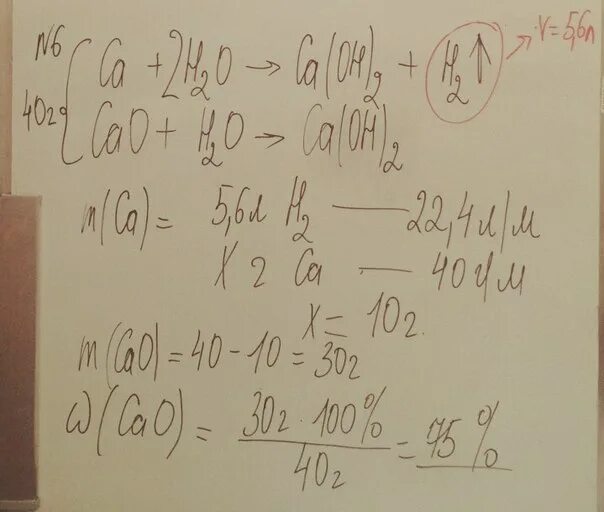 N6
Ca + 2H₂O → Ca(OH)₂ + H₂↑ → V=5,6л
40г
CaO + H₂O → Ca(OH)₂
m(Ca) = 5,6л H₂ — 22,4л/м
X г Ca — 40г/м
X = 10г.
m(CaO) = 40 - 10 = 30г
ω(CaO) = 30г · 100% / 40г = 75%